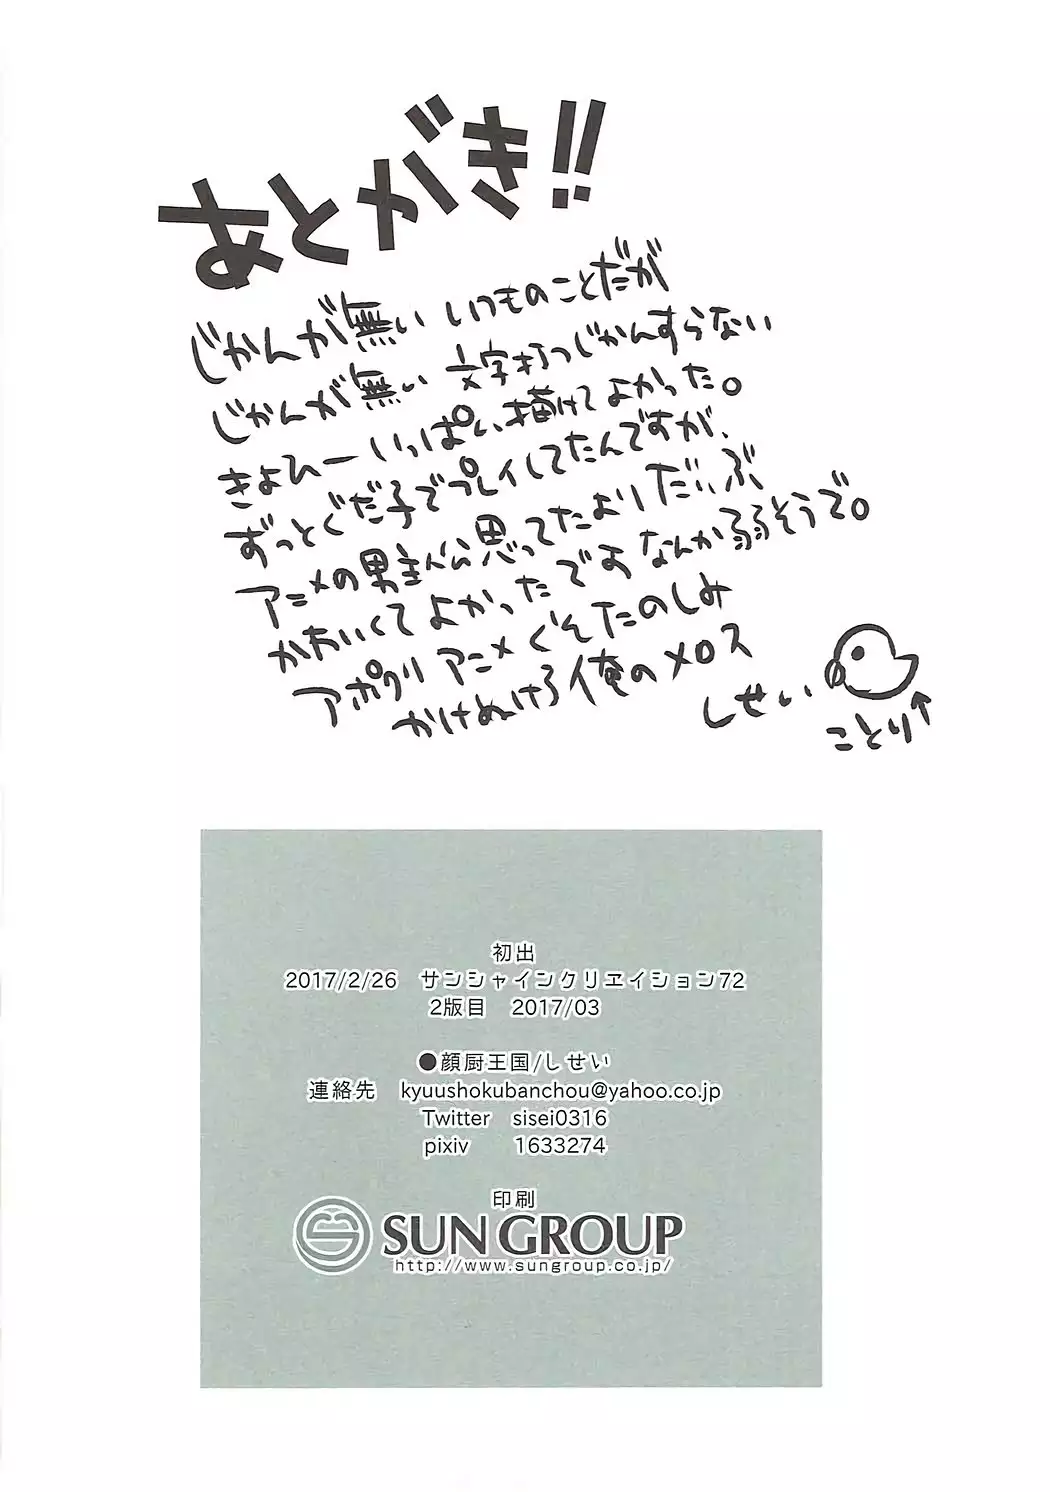 あとがき!!
じかんが無い いつものことだが
じかんが無い 文字打つじかんすらない
きよひーいっぱい描けてよかった。
ずっとぐだ子でプレイしてたんですが、
アニメの男主人公思ってたよりだいぶ
かわいくてよかったですなんか弱そうで。
アポクリアニメぐそたのしみ
かけぬけろ俺のメロス
しせい
ことり↑
初出
2017/2/26 サンシャインクリエイション72
2版目 2017/03
●顔厨王国/しせい
連絡先 kyuushokubanchou@yahoo.co.jp
Twitter sisei0316
pixiv 1633274
印刷
SUN GROUP
http://www.sungroup.co.jp/